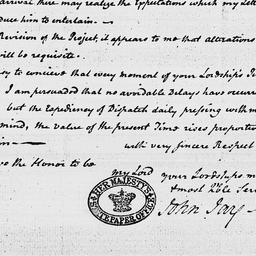 arrival there may realize the Expectations which my Lette
duce him to entertain. —
Revision of the Project, it appears to me that alterations
will be requisite.
sy to conceive that every moment of your Lordship's Ti
I am persuaded that no avoidable Delays have occurre
but the Expediency of Dispatch daily pressing with mo
mind, the value of the present Time rises proportio
in — with very sincere Respect
ve the Honor to be
my Lord your Lordships m
& most Hble Serv
HER MAJESTY'S STATE PAPER OFFICE
John Jay